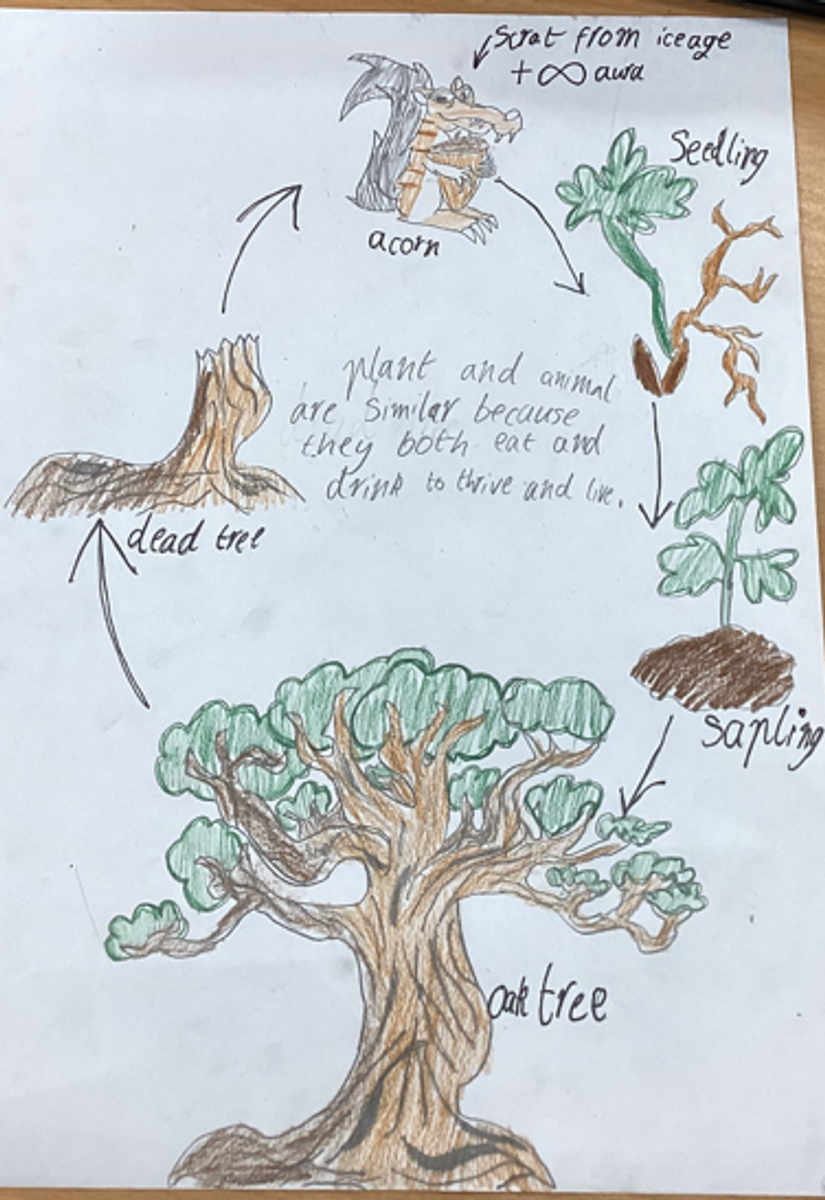 Scrat from iceage
+∞ aura
Seedling
acorn
plant and animal
are similar because
they both eat and
drink to thrive and live.
dead tree
sapling
oak tree